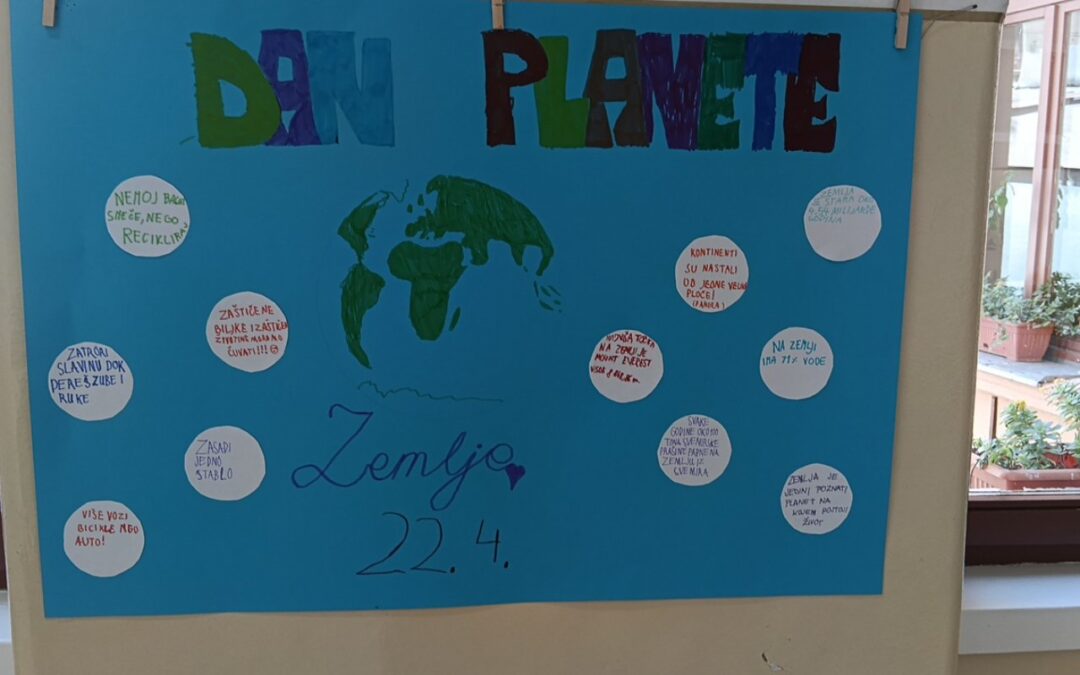 DAN PLANETE
Zemlje
22. 4.
NEMOJ BACAT
SMEČE, NEGO
RECIKLIRAJ
ZAŠTIČENE
BILJKE I ZAŠTIČEN
ŽIVOTINJE MORAMO
ČUVATI!!!
ZATVORI
SLAVINU DOK
PEREŠ ZUBE I
RUKE
ZASADI
JEDNO
STABLO
VIŠE VOZI
BICIKLE NEGO
AUTO!
ZEMLJA
JE STARA OKO
4.54 MILIJARDE
GODINA
KONTINENTI
SU NASTALI
OD JEDNE VELIKE
PLOČE!
TOČKA
NA ZEMLJI JE
MOUNT EVEREST
VISOK
NA ZEMLJI
IMA 71% VODE
SVAKE
GODINE OKO
TONA SVEMIRSKE
PRAŠINE PADNE NA
ZEMLJU IZ
SVEMIRA
ZEMLJA JE
JEDINI POZNATI
PLANET NA
KOJEM POSTOJI
ŽIVOT